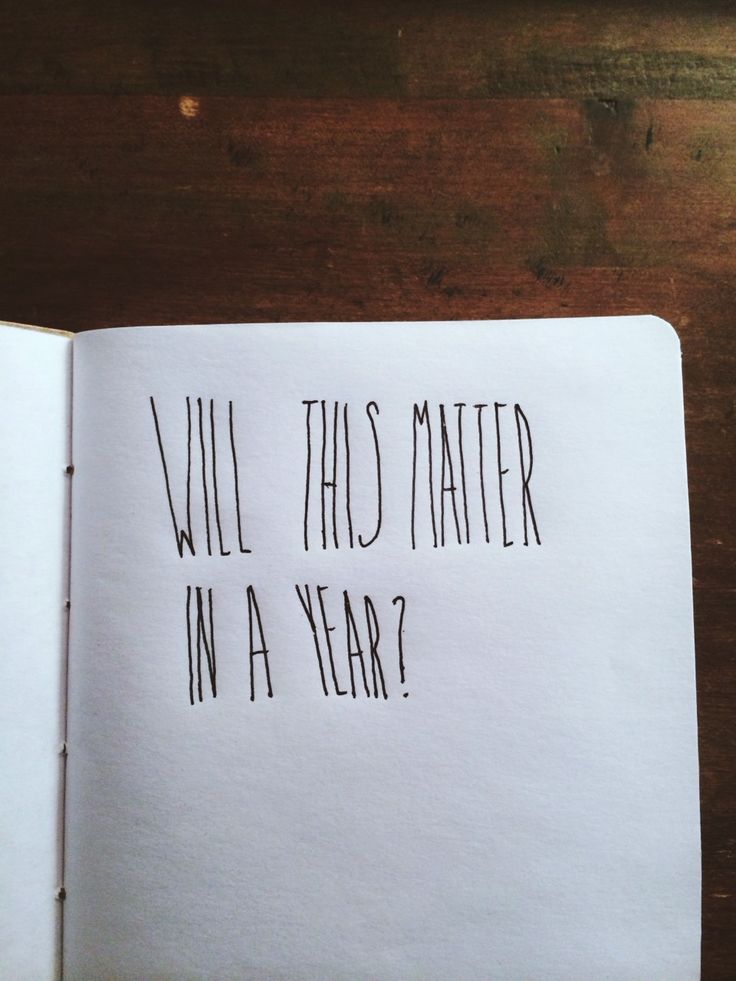 WILL THIS MATTER
IN A YEAR?